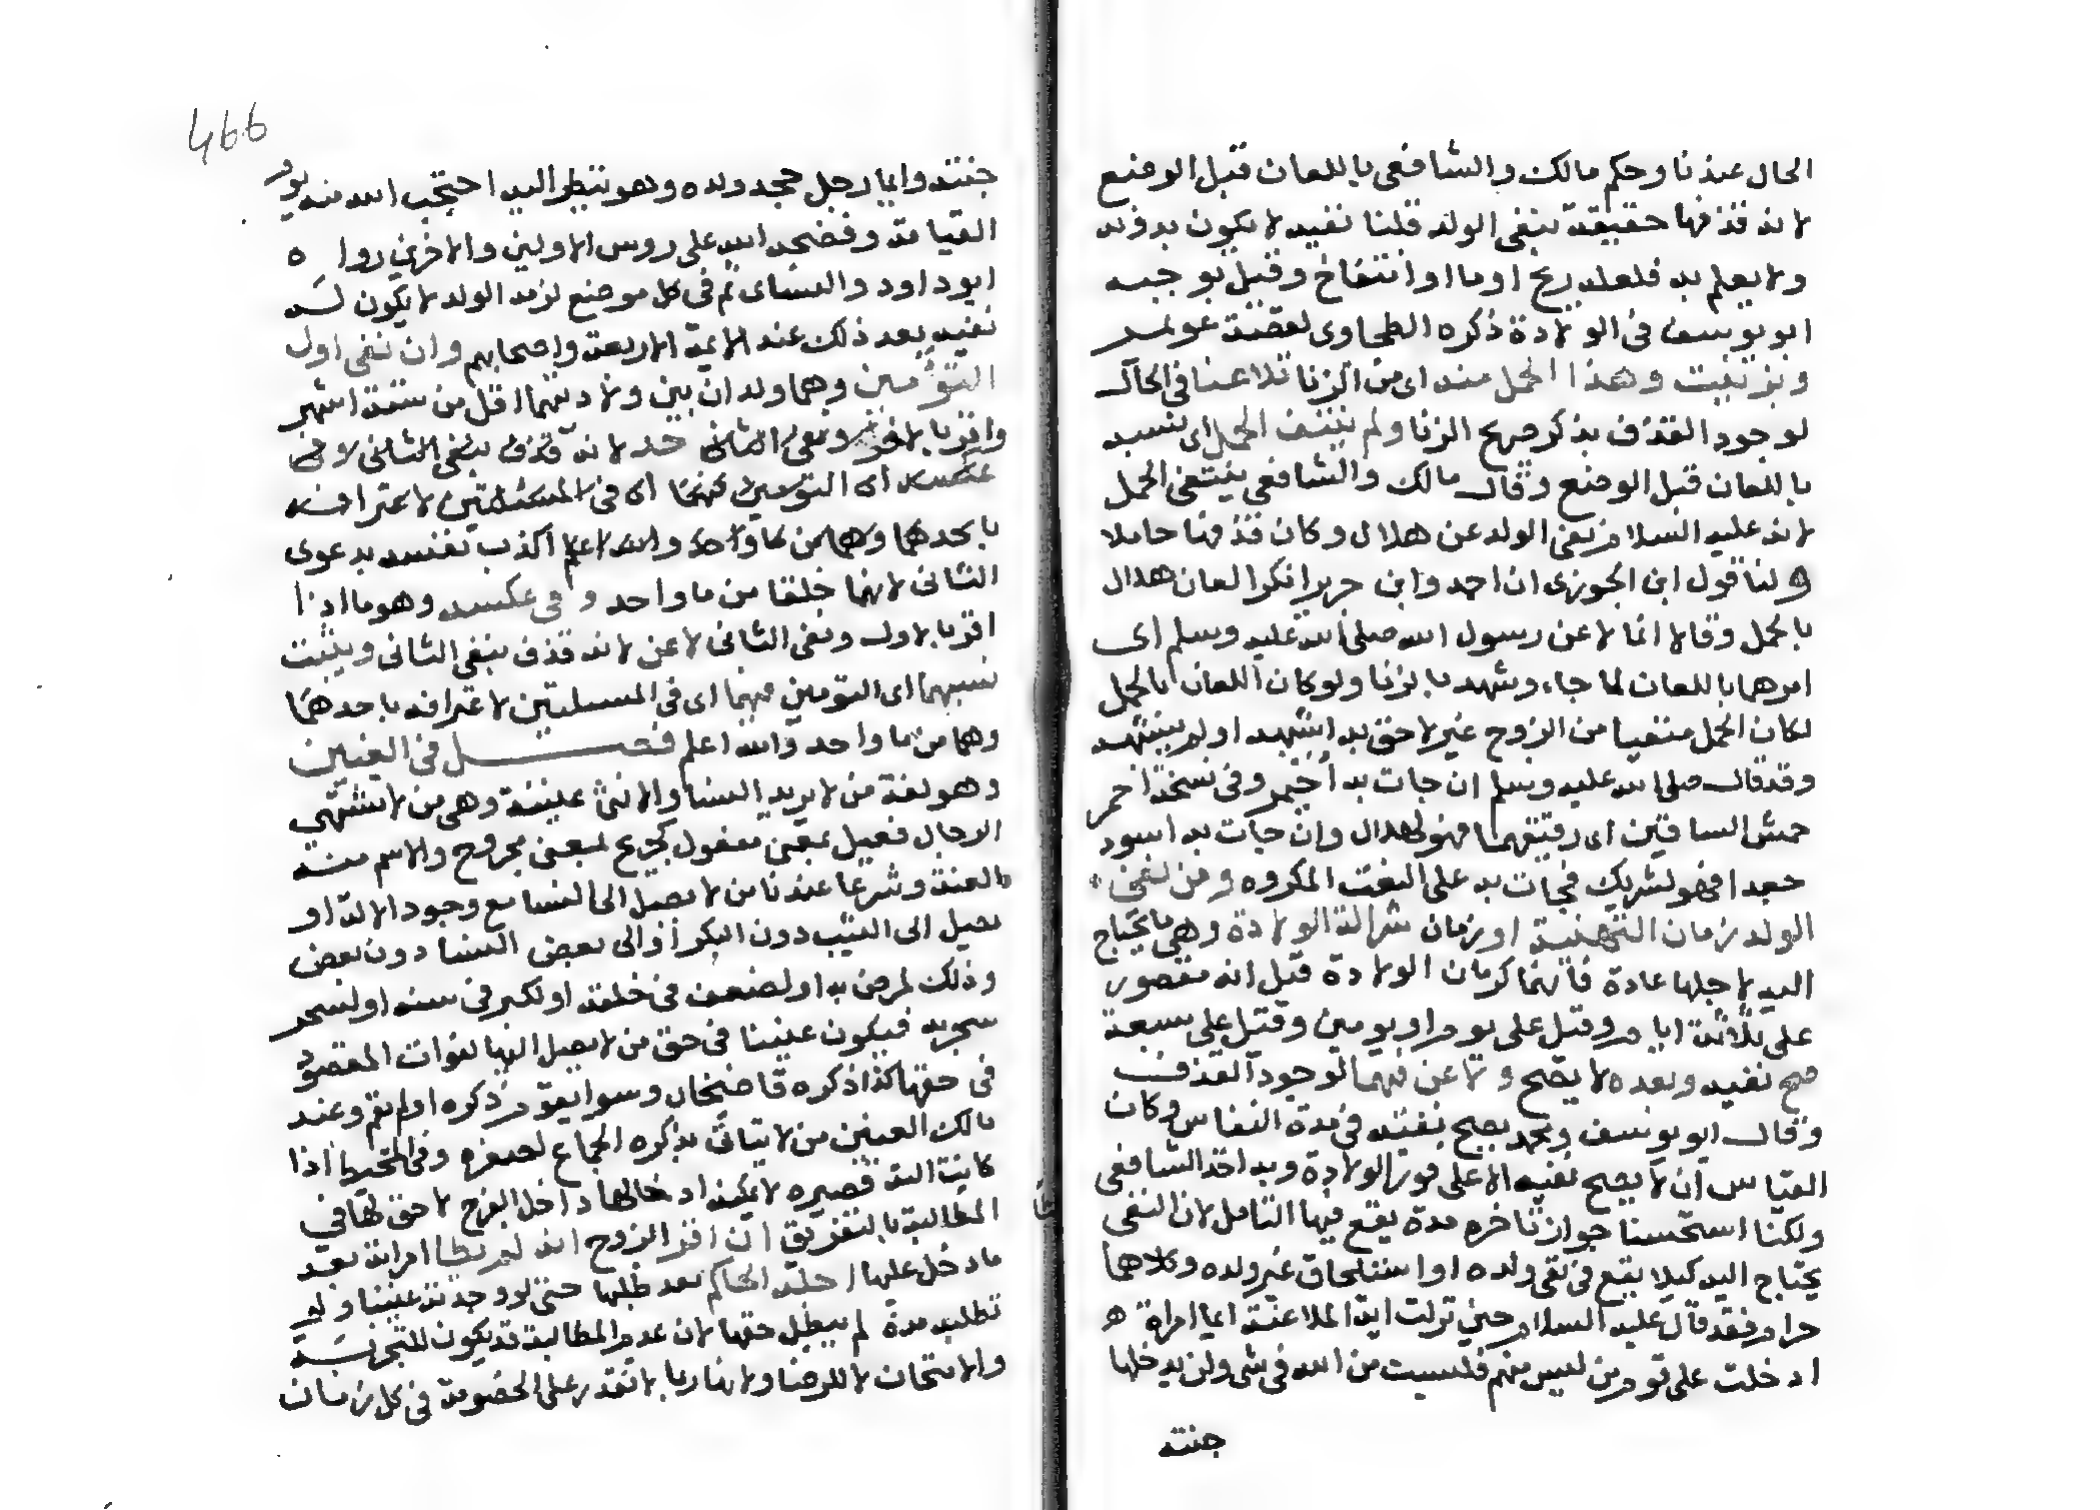 الحال عندنا وحكم مالك والشافعي باللعان قبل الوضع
لانه قذفها حقيقة بنفى الولد قلنا نفيه لا يكون بدونه
ولا يعلم به فلعله ريح او ما او انتفاخ وقيل يوجبه
ابو يوسف فى الولادة ذكره الطحاوى لقصة عويمر
وبزنيت وهذا الحمل منه اى من الزنا تلاعنا فى الحال
لوجود القذف بذكر صريح الزنا ولم ينتف الحمل اى نسبه
باللعان قبل الوضع وقال مالك والشافعي ينتفى الحمل
لانه عليه السلام نفى الولد عن هلال وكان قذفها حاملا
ولنا قول ابن الجوزى ان احمد وابن جرير انكرا لعان هلال
بالحمل وقالا انما لاعن رسول الله صلى الله عليه وسلم اى
امرهما باللعان لما جاء وشهد بالزنا ولو كان اللعان بالحمل
لكان الحمل منتفيا من الزوج غير لاحق به اشبهه او لم يشبهه
وقد قال صلى الله عليه وسلم ان جات به أحيمر وفى نسخة احمر
حمش الساقين اى رقيقهما فهو لهلال وان جات به اسود
جعدا فهو لشريك فجات به على النعت المكروه ومن نفى
الولد زمان التهنية او زمان شرا الة الولادة وهى ما يحتاج
اليه لاجلها عادة فانهما كزمان الولادة قيل انه مقصور
على ثلاثة ايام وقيل على يوم او يومين وقيل على سبعة
صح نفيه وبعده لا يصح ولاعن فيهما لوجود القذف
وقال ابو يوسف ومحمد يصح نفيه فى مدة النفاس وكان
القياس ان لا يصح نفيه الا على فور الولادة وبه اخذ الشافعى
ولكنا استحسنا جواز تاخره مدة يقع فيها التامل لان النفى
يحتاج اليه كيلا يقع فى نفى ولده او استلحاق غير ولده وكلاهما
حرام فقد قال عليه السلام حين نزلت اية الملاعنة ايما امراة
ادخلت على قوم من ليس منهم فليست من الله فى شى ولن يدخلها
جنته
466
جنته وايما رجل جحد ولده وهو ينظر اليه احتجب الله منه يوم
القيامة وفضحه الله على روس الاولين والاخرين رواه
ابو داود والنساى ثم فى كل موضع لزمه الولد لا يكون له
نفيه بعد ذلك عند الايمة الاربعة واصحابهم وان نفى اول
التؤمين وهما ولدان بين ولادتهما اقل من ستة اشهر
واقر بالاخر ونفى الثانى حد لانه قذف بنفى الثانى لا فى
عكسه اى التومين فيهما اى فى المسئلتين لاعترافه
باحدهما وهما من ما واحد والله اعلم اكذب نفسه بدعوى
الثانى لانهما خلقا من ما واحد وفى عكسه وهو ما اذا
اقر بالاول ونفى الثانى لاعن لانه قذف بنفى الثانى ويثبت
نسبهما اى التومين فيهما اى فى المسلتين لاعترافه باحدهما
وهما من ما واحد والله اعلم فصل فى العنين
وهو لغة من لا يريد النسا والانثى عنينة وهى من لا تشتهى
الرجال فعيل بمعنى مفعول كجريح بمعنى مجروح والاسم منه
العنة وشرعا عندنا من لا يصل الى النسا مع وجود الالة او
يصل الى الثيب دون البكر أو الى بعض النسا دون بعض
وذلك لمرض به او لضعف فى خلقه او لكبر فى سنه او لسحر
سحر به فيكون عنينا فى حق من لا يصل اليها لفوات المقصود
فى حقها كذا ذكره قاضيخان وسوا يقوم ذكره او لم يقم وعند
مالك العنين من لا يتاتى بذكره الجماع لصغره وفى المحيط اذا
كانت الته قصيره لا يمكنه ادخالها داخل الفرج لا حق لها فى
المطالبة بالتفريق ان اقر الزوج انه لم يطا امراته بعد
ما دخل عليها احله الحاكم بعد طلبها حتى لو وجدته عنينا ولم
تطلبه مدة لم يبطل حقها لان عدم المطالبة قد يكون للتجربة
والامتحان لا للرضا ولانها ربما لا تقدر على الخصومة فى كل زمان